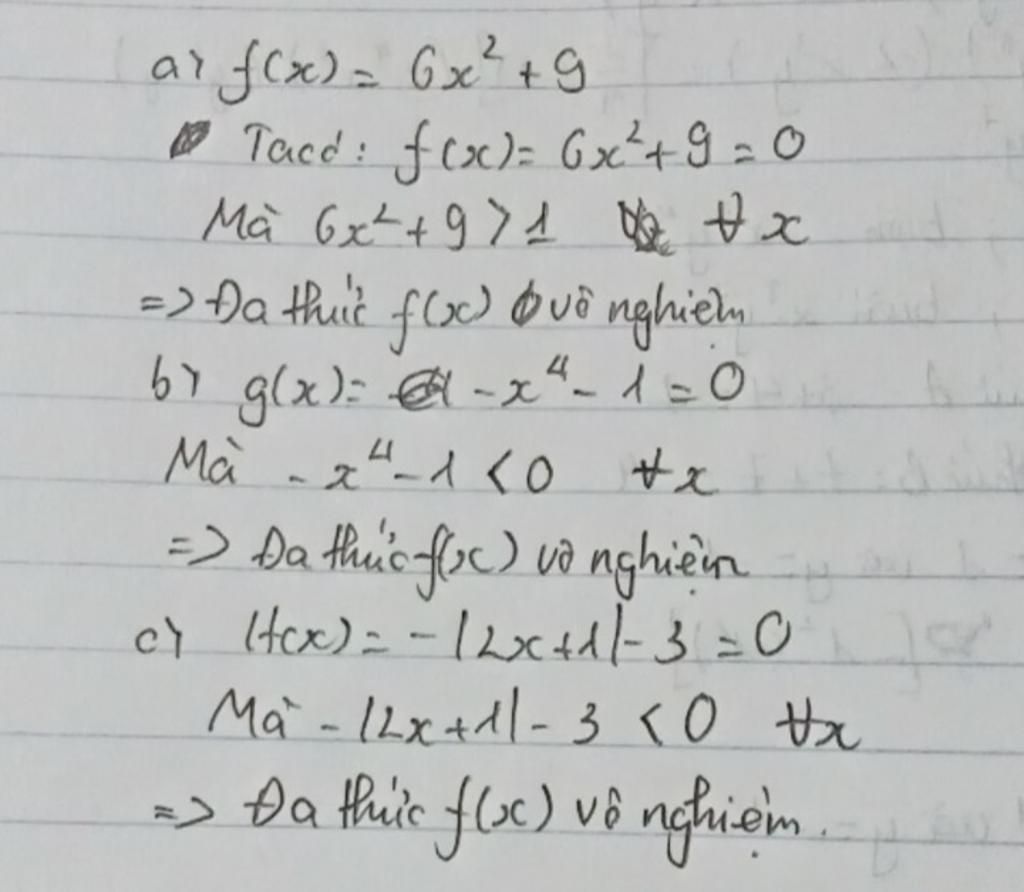 a) f(x) = 6x² + 9
Ta có: f(x) = 6x² + 9 = 0
Mà 6x² + 9 > 1 ∀ x
=> Đa thức f(x) vô nghiệm
b) g(x) = -x⁴ - 1 = 0
Mà -x⁴ - 1 < 0 ∀x
=> Đa thức f(x) vô nghiệm
c) H(x) = -|2x+1| - 3 = 0
Mà -|2x+1| - 3 < 0 ∀x
=> Đa thức f(x) vô nghiệm.